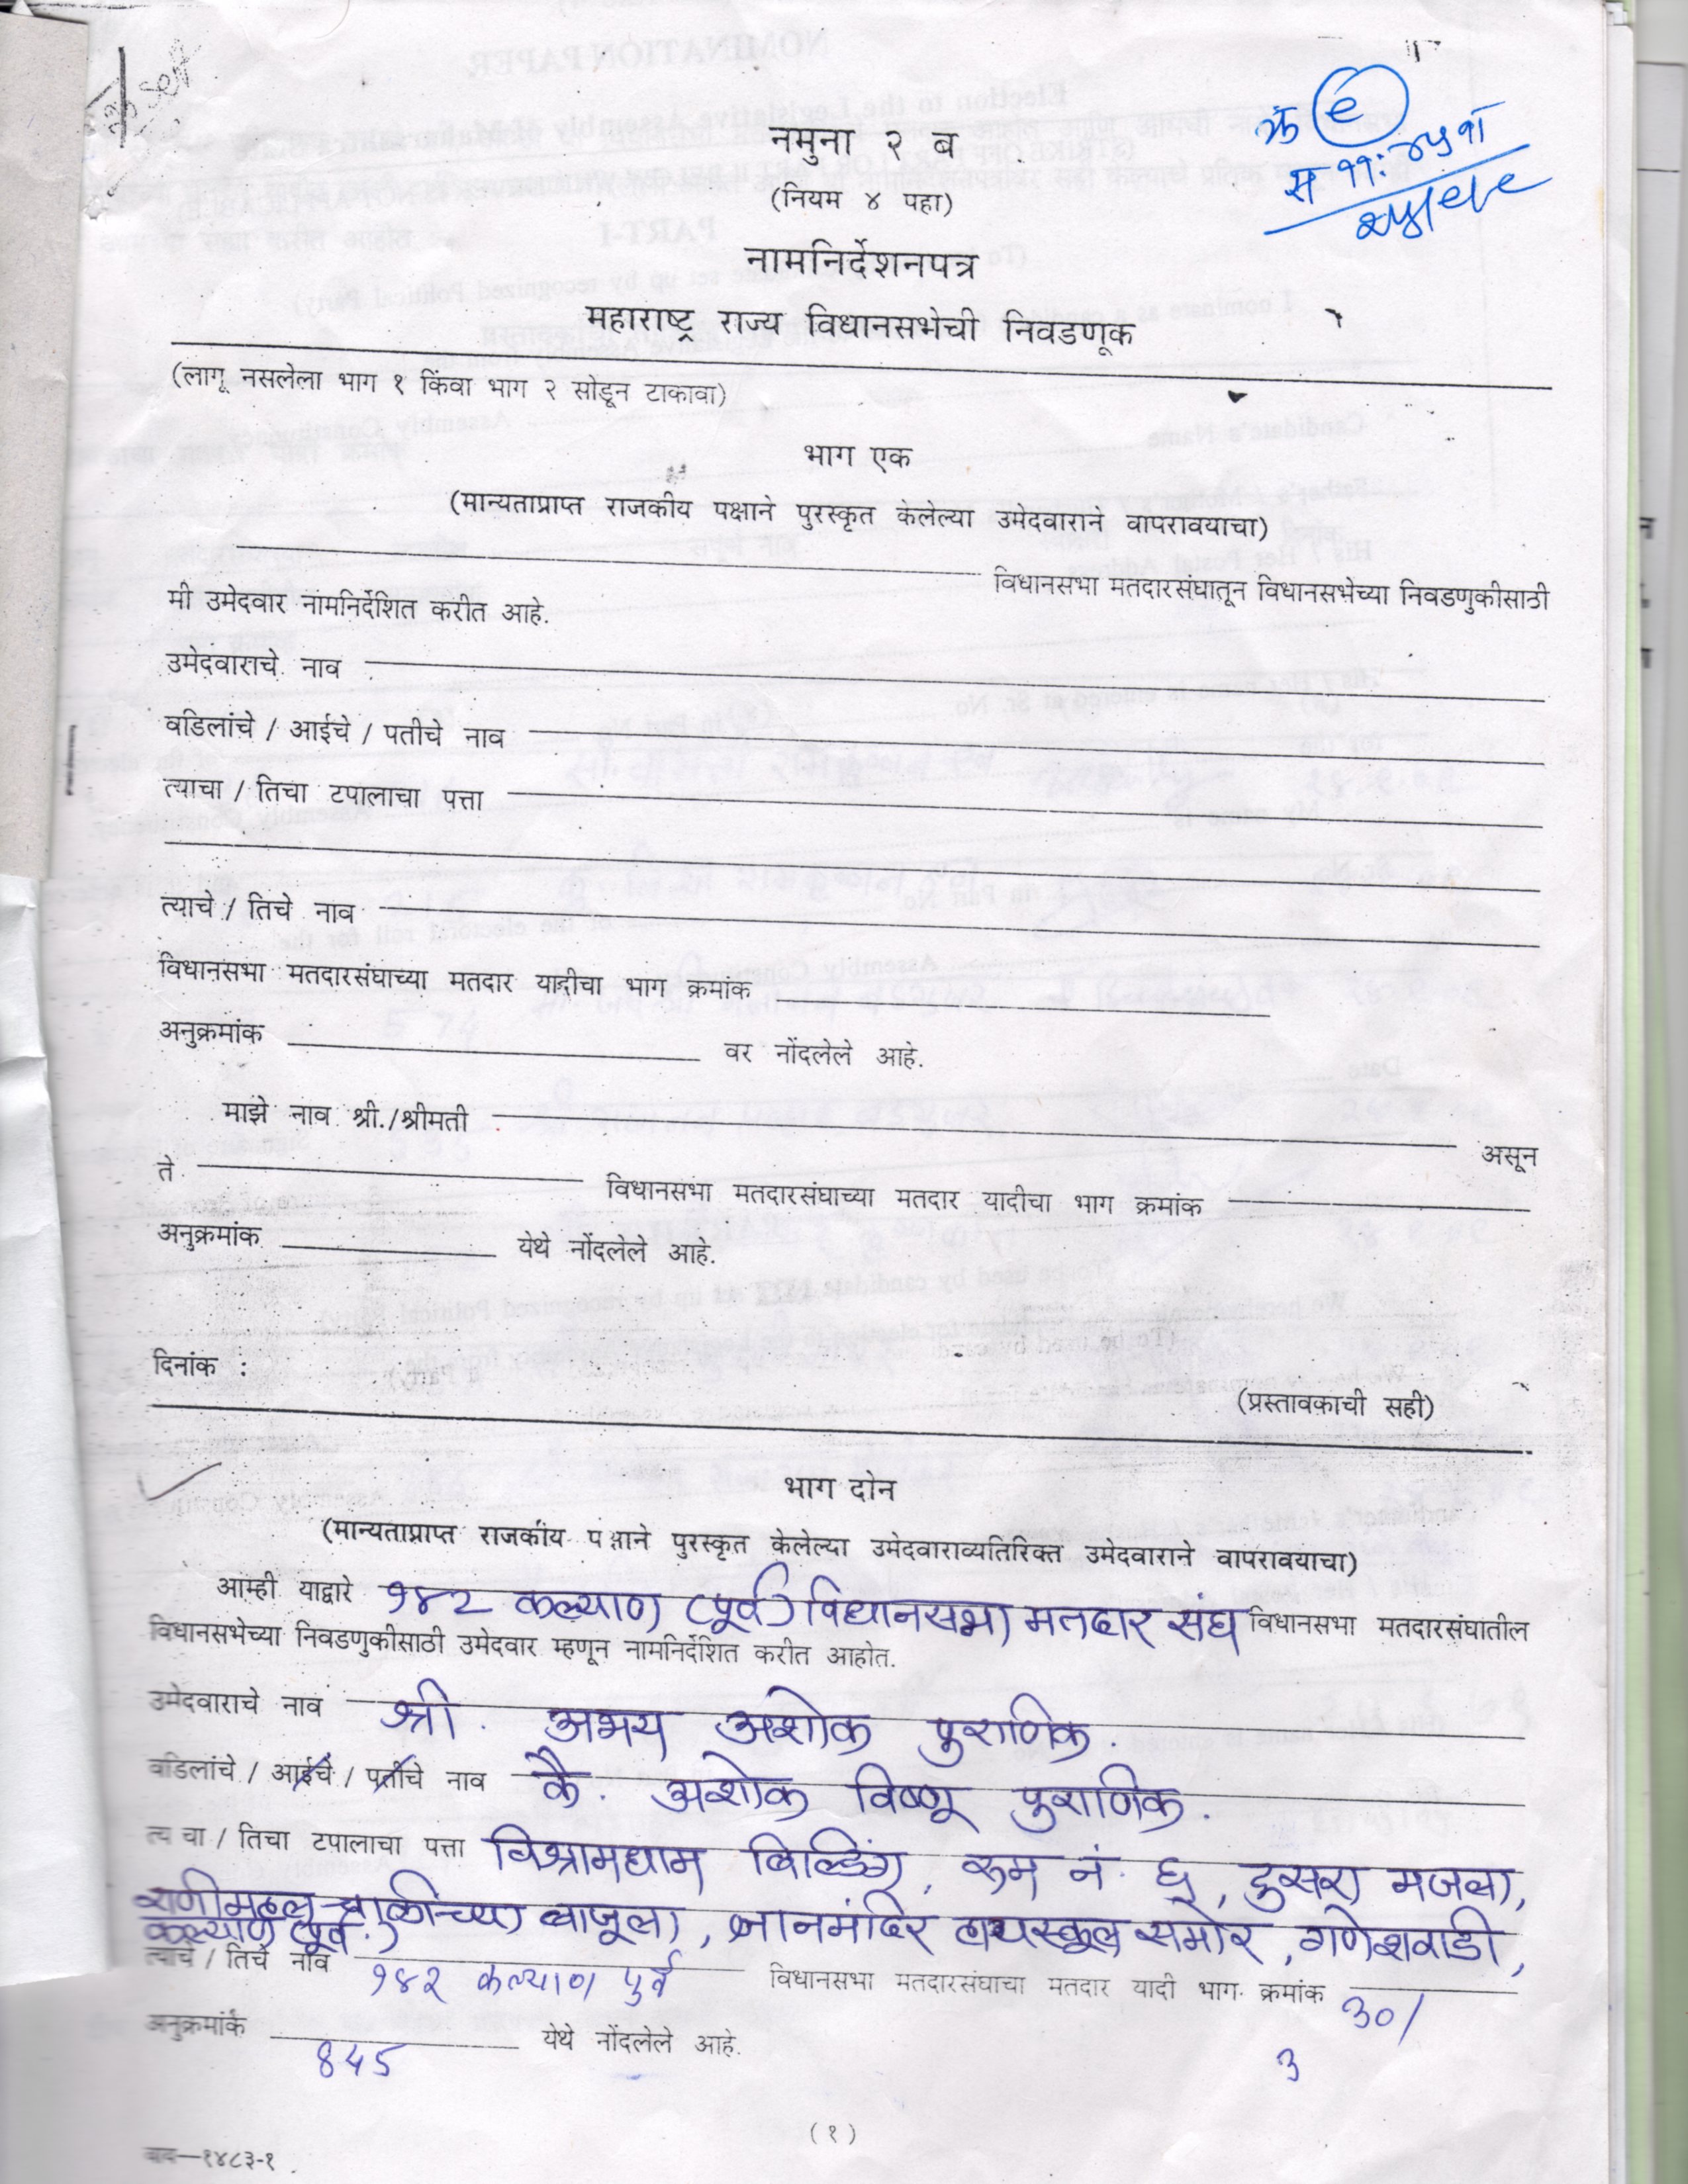 नमुना २ ब
(नियम ४ पहा)
नामनिर्देशनपत्र
महाराष्ट्र राज्य विधानसभेची निवडणूक
(लागू नसलेला भाग १ किंवा भाग २ सोडून टाकावा)
भाग एक
(मान्यताप्राप्त राजकीय पक्षाने पुरस्कृत केलेल्या उमेदवाराने वापरावयाचा)
विधानसभा मतदारसंघातून विधानसभेच्या निवडणुकीसाठी
मी उमेदवार नामनिर्देशित करीत आहे.
उमेदवाराचे नाव
वडिलांचे / आईचे / पतीचे नाव
त्याचा / तिचा टपालाचा पत्ता
त्याचे / तिचे नाव
विधानसभा मतदारसंघाच्या मतदार यादीचा भाग क्रमांक
अनुक्रमांक वर नोंदलेले आहे.
माझे नाव श्री./श्रीमती असून
ते विधानसभा मतदारसंघाच्या मतदार यादीचा भाग क्रमांक
अनुक्रमांक येथे नोंदलेले आहे.
दिनांक :
(प्रस्तावकाची सही)
भाग दोन
(मान्यताप्राप्त राजकीय पक्षाने पुरस्कृत केलेल्या उमेदवाराव्यतिरिक्त उमेदवाराने वापरावयाचा)
आम्ही याद्वारे १४२ कल्याण (पूर्व) विधानसभा मतदार संघ विधानसभा मतदारसंघातील
विधानसभेच्या निवडणुकीसाठी उमेदवार म्हणून नामनिर्देशित करीत आहोत.
उमेदवाराचे नाव श्री. अभय अशोक पुराणिक.
वडिलांचे / आईचे / पतीचे नाव कै. अशोक विष्णू पुराणिक.
त्याचा / तिचा टपालाचा पत्ता विश्रामधाम बिल्डिंग, रूम नं. ६, दुसरा मजला,
राणीमहल चाळीच्या बाजूला, ज्ञानमंदिर हायस्कूल समोर, गणेशवाडी,
कल्याण (पूर्व.)
त्याचे / तिचे नाव १४२ कल्याण पुर्व विधानसभा मतदारसंघाचा मतदार यादी भाग क्रमांक 30/
3
अनुक्रमांक 845 येथे नोंदलेले आहे.
(१)
वाद—१४८३-१